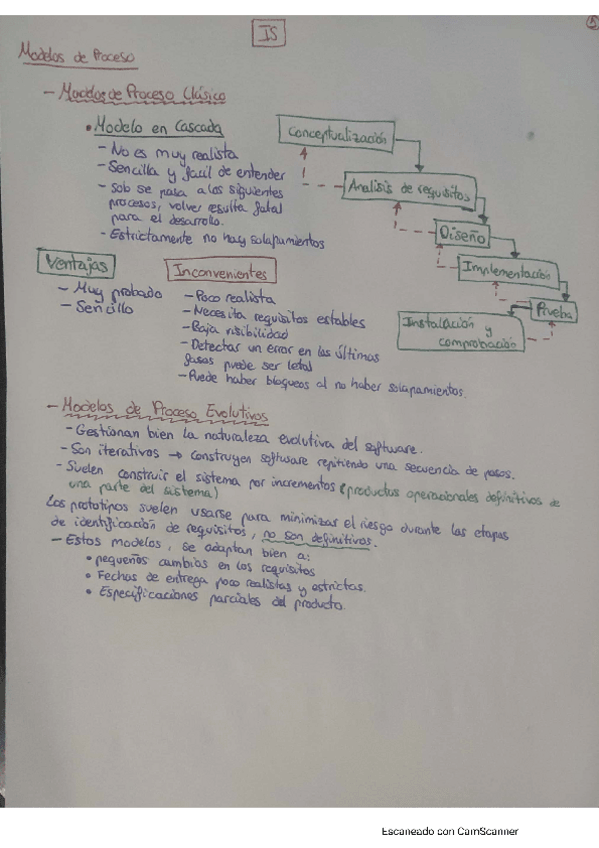 IS
5
Modelos de Proceso
- Modelos de Proceso Clásico
• Modelo en Cascada
- No es muy realista
- Sencilla y facil de entender
- Solo se pasa a los siguientes
procesos, volver resulta fatal
para el desarrollo.
- Estrictamente no hay solapamientos
Conceptualización
Analisis de requisitos
Diseño
Implementación
Prueba
Instalación y
comprobación
Ventajas
- Muy probado
- Sencillo
Inconvenientes
- Poco realista
- Necesita requisitos estables
- Baja visibilidad
- Detectar un error en las últimas
fases puede ser letal
- Puede haber bloqueos al no haber solapamientos.
- Modelos de Proceso Evolutivos
- Gestionan bien la naturaleza evolutiva del software.
- Son iterativos → construyen software repitiendo una secuencia de pasos.
- Suelen construir el sistema por incrementos (productos operacionales definitivos de
una parte del sistema)
Los prototipos suelen usarse para minimizar el riesgo durante las etapas
de identificación de requisitos, no son definitivos.
- Estos modelos, se adaptan bien a:
• pequeños cambios en los requisitos
• Fechas de entrega poco realistas y estrictas.
• Especificaciones parciales del producto.
Escaneado con CamScanner